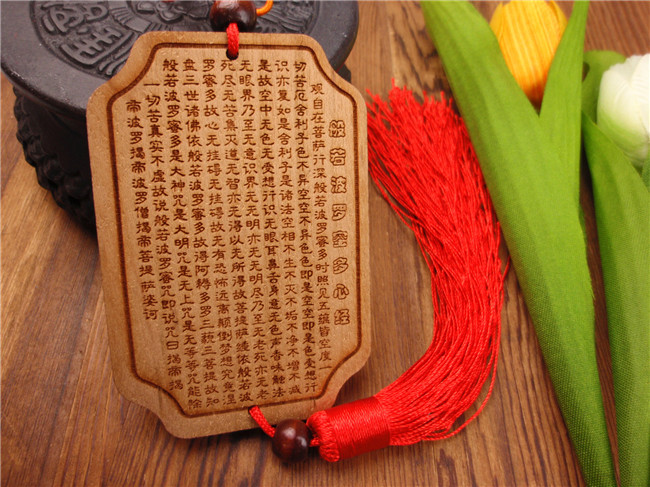 般若波罗蜜多心经
观自在菩萨行深般若波罗蜜多时照见五蕴皆空度一
切苦厄舍利子色不异空空不异色色即是空空即是色受想行
识亦复如是舍利子是诸法空相不生不灭不垢不净不增不减
是故空中无色无受想行识无眼耳鼻舌身意无色声香味触法
无眼界乃至无意识界无无明亦无无明尽乃至无老死亦无老
死尽无苦集灭道无智亦无得以无所得故菩提萨埵依般若波
罗蜜多故心无挂碍无挂碍故无有恐怖远离颠倒梦想究竟涅
盘三世诸佛依般若波罗蜜多故得阿耨多罗三藐三菩提故知
般若波罗蜜多是大神咒是大明咒是无上咒是无等等咒能除
一切苦真实不虚故说般若波罗蜜咒即说咒曰揭帝揭
帝波罗揭帝波罗僧揭帝菩提萨婆诃